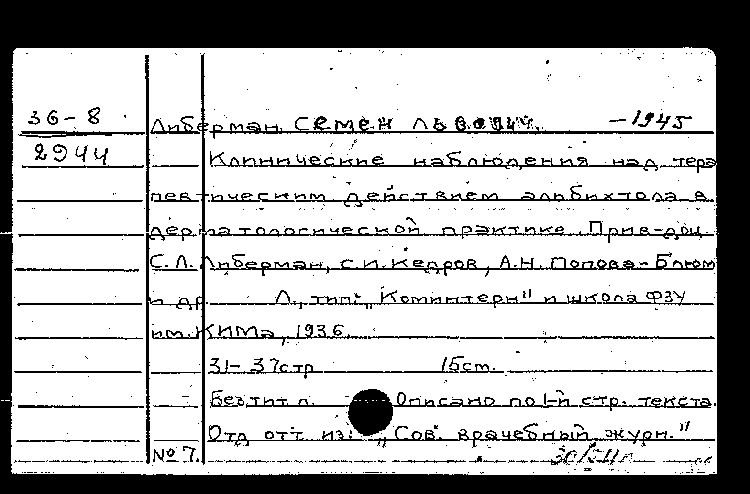 36-8 Либерман, Семен Львович. -1945
2944 Клинические наблюдения над тера
певтическим действием альбихтола в
дерматологической практике. Прив-доц.
С.Л. Либерман, С.И. Кедров, А.Н. Попова-Блюм
и др. Л., тип. „Коминтерн" и школа ФЗУ
им. КИМа, 1936.
31-37 стр. 15 см.
Без тит. л. Описано по 1-й стр. текста.
Отд. отт. из: „Сов. врачебный журн."
№ 7.